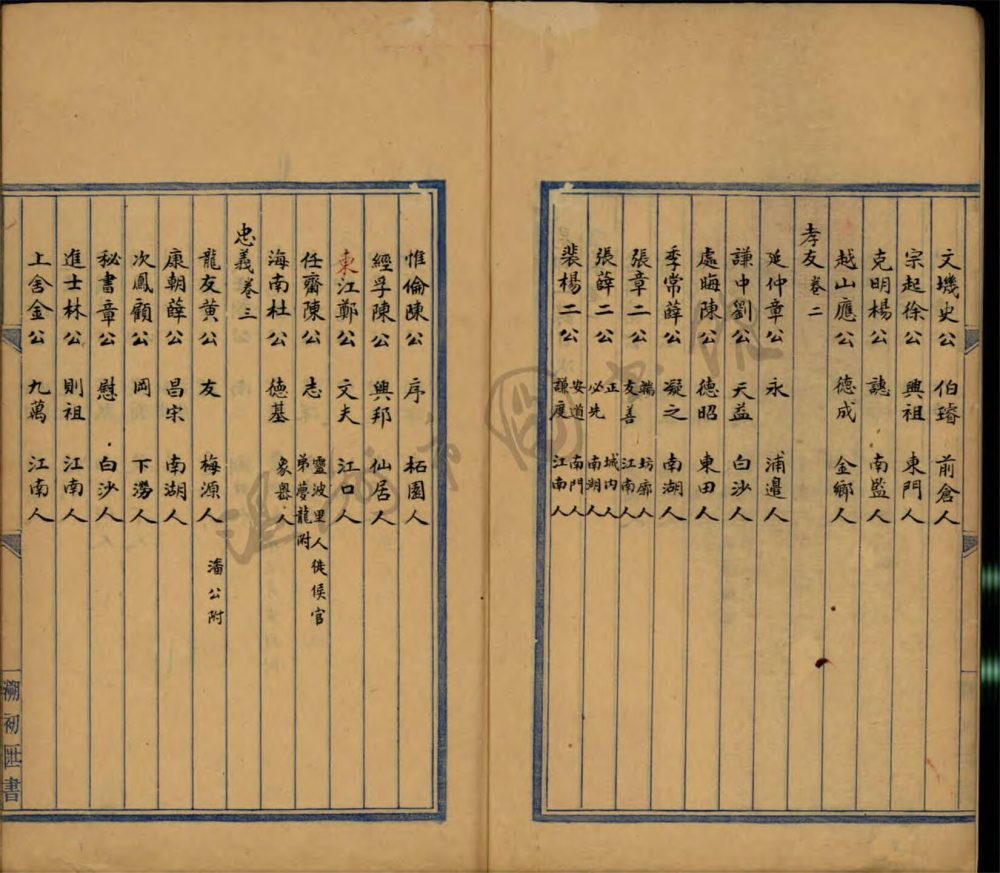 文璣史公 伯璿 前倉人
宗起徐公 興祖 東門人
克明楊公 譓 南監人
越山應公 德成 金鄉人
孝友 卷二
延仲章公 永 浦邊人
謙中劉公 天益 白沙人
處晦陳公 德昭 東田人
季常薛公 凝之 南湖人
張章二公 端 友善 坊廓人 江南人
張薛二公 正 必先 城內人 南湖人
裴楊二公 安道 謙度 南門人 江南人
惟倫陳公 序 柘園人
經孚陳公 興邦 仙居人
東江鄭公 文夫 江口人
任齋陳公 志 靈波里人徙侯官 弟夢龍附
海南杜公 德基 象嶴人
忠義 卷三
龍友黃公 友 梅源人 潘公附
康朝薛公 昌宋 南湖人
次鳳顧公 岡 下澇人
秘書章公 慰 白沙人
進士林公 則祖 江南人
上舍金公 九萬 江南人
溯初匨書